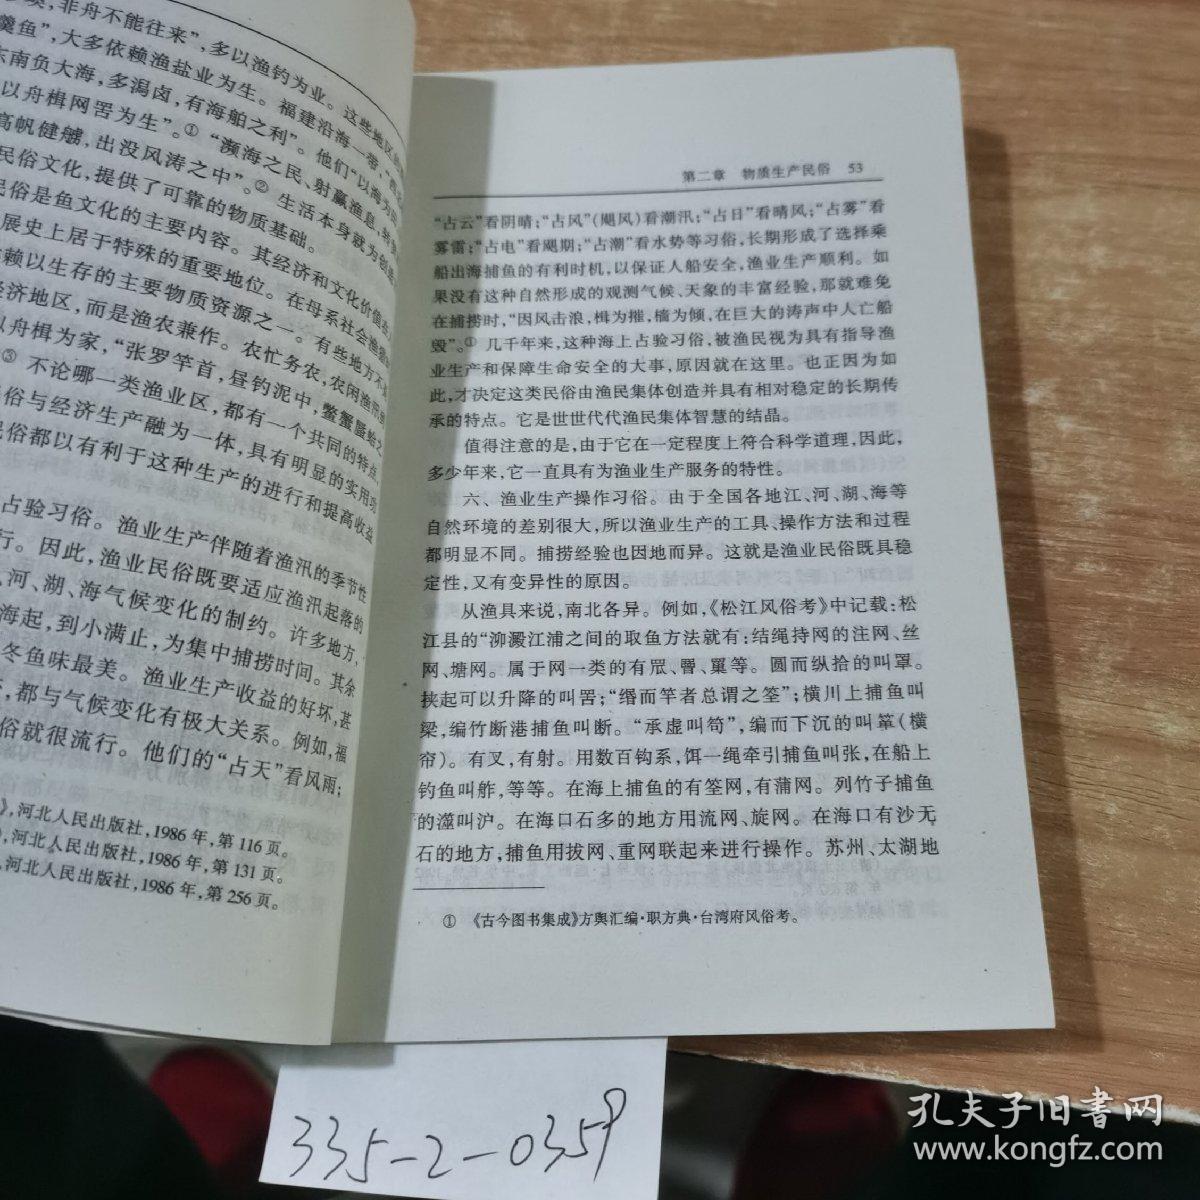 ，非舟不能往来”，多以渔钓为业。这些地区的
羹鱼”，大多依赖渔盐业为生。福建沿海一带，“西
东南负大海，多潟卤，有海舶之利”。他们“以海为
以舟楫网罟为生”。① “濒海之民、射赢渔息，转
高帆健艣，出没风涛之中”。② 生活本身就为创造
民俗文化，提供了可靠的物质基础。
民俗是鱼文化的主要内容。其经济和文化价值在
展史上居于特殊的重要地位。在母系社会渔
赖以生存的主要物质资源之一。有些地方不
经济地区，而是渔农兼作。农忙务农，农闲渔
以舟楫为家，“张罗竿首，昼钓泥中，鳖蟹蜃蛤之
③ 不论哪一类渔业区，都有一个共同的特点，
俗与经济生产融为一体，具有明显的实用功
民俗都以有利于这种生产的进行和提高收益
占验习俗。渔业生产伴随着渔汛的季节性
行。因此，渔业民俗既要适应渔汛起落的
、河、湖、海气候变化的制约。许多地方、
海起，到小满止，为集中捕捞时间。其余
冬鱼味最美。渔业生产收益的好坏，甚
，都与气候变化有极大关系。例如，福
俗就很流行。他们的“占天”看风雨；
》，河北人民出版社，1986年，第116页。
，河北人民出版社，1986年，第131页。
，河北人民出版社，1986年，第256页。
第二章 物质生产民俗 53
“占云”看阴晴；“占风”（飓风）看潮汛；“占日”看晴风；“占雾”看
雾雷；“占电”看飓期；“占潮”看水势等习俗，长期形成了选择乘
船出海捕鱼的有利时机，以保证人船安全，渔业生产顺利。如
果没有这种自然形成的观测气候、天象的丰富经验，那就难免
在捕捞时，“因风击浪，楫为摧，樯为倾，在巨大的涛声中人亡船
毁”。① 几千年来，这种海上占验习俗，被渔民视为具有指导渔
业生产和保障生命安全的大事，原因就在这里。也正因为如
此，才决定这类民俗由渔民集体创造并具有相对稳定的长期传
承的特点。它是世世代代渔民集体智慧的结晶。
值得注意的是，由于它在一定程度上符合科学道理，因此，
多少年来，它一直具有为渔业生产服务的特性。
六、渔业生产操作习俗。由于全国各地江、河、湖、海等
自然环境的差别很大，所以渔业生产的工具、操作方法和过程
都明显不同。捕捞经验也因地而异。这就是渔业民俗既具稳
定性，又有变异性的原因。
从渔具来说，南北各异。例如，《松江风俗考》中记载：松
江县的“泖澱江浦之间的取鱼方法就有：结绳持网的注网、丝
网、塘网。属于网一类的有罛、罾、罺等。圆而纵拾的叫罩。
挟起可以升降的叫罟；“缗而竿者总谓之筌”；横川上捕鱼叫
梁，编竹断港捕鱼叫断。“承虚叫笱”，编而下沉的叫箪（横
帘）。有叉，有射。用数百钩系，饵一绳牵引捕鱼叫张，在船上
钓鱼叫舴，等等。在海上捕鱼的有筌网，有蒲网。列竹子捕鱼
的澨叫沪。在海口石多的地方用流网、旋网。在海口有沙无
石的地方，捕鱼用拔网、重网联起来进行操作。苏州、太湖地
① 《古今图书集成》方舆汇编·职方典·台湾府风俗考。
335-2-0359
孔夫子旧书网
www.kongfz.com